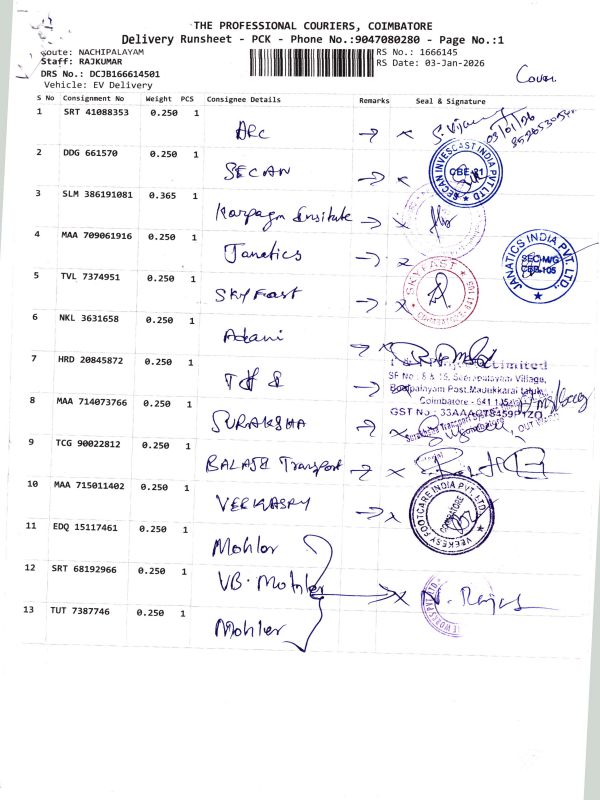 THE PROFESSIONAL COURIERS, COIMBATORE
Delivery Runsheet - PCK - Phone No.:9047080280 - Page No.:1
Route: NACHIPALAYAM
RS No.: 1666145
Staff: RAJKUMAR
RS Date: 03-Jan-2026
DRS No.: DCJB166614501
Vehicle: EV Delivery
Cover
S No Consignment No Weight PCS Consignee Details Remarks Seal & Signature
1 SRT 41088353 0.250 1 ARC
S. Vijay
03/01/26
2 DDG 661570 0.250 1 SECAN
SECAN INVESCAST INDIA PVT LTD
CBE-21
3 SLM 386191081 0.365 1 Karpagm Institute
4 MAA 709061916 0.250 1 Janatics
JANATICS INDIA PVT. LTD.,
SEC-M/G
CBE-105
5 TVL 7374951 0.250 1 SKY Fast
SKYFAST
6 NKL 3631658 0.250 1 Adani
7 HRD 20845872 0.250 1
Limited
SF No : 8 & 15, Seerapalayam Village,
Bodipalayam Post, Madukkarai taluk,
Coimbatore - 641
GST No : 33AAACT8459P1ZO
8 MAA 714073766 0.250 1 SURAKSHA
9 TCG 90022812 0.250 1 BALAJI Transport
10 MAA 715011402 0.250 1 VEEKAESY
VEEKESY FOOTCARE INDIA PVT. LTD
COIMBATORE
11 EDQ 15117461 0.250 1 Mohler
12 SRT 68192966 0.250 1 VB. Mohler
N. Rajas
13 TUT 7387746 0.250 1 Mohler